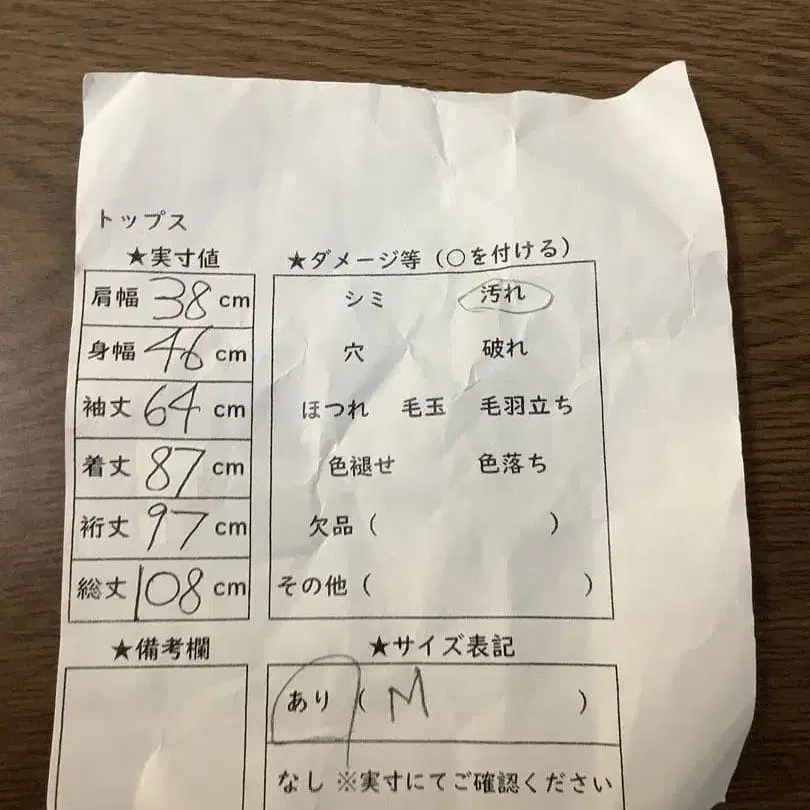 トップス
★実寸値
肩幅 38 cm
身幅 46 cm
袖丈 64 cm
着丈 87 cm
裄丈 97 cm
総丈 108 cm
★備考欄
★ダメージ等（○を付ける）
シミ 汚れ
穴 破れ
ほつれ 毛玉 毛羽立ち
色褪せ 色落ち
欠品（ ）
その他（ ）
★サイズ表記
あり（ M ）
なし ※実寸にてご確認ください